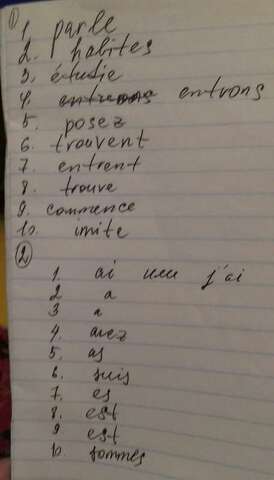 ①
1. parle
2. habites
3. étudie
4. entrons
5. posez
6. trouvent
7. entrent
8. trouve
9. commence
10. imite
②
1. ai или j'ai
2 a
3 a
4. avez
5. as
6. suis
7. es
8. est
9 est
10 sommes